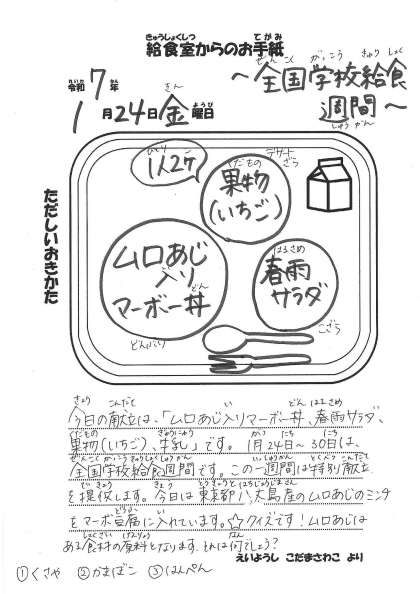 きゅうしょくしつ てがみ
給食室からのお手紙
ぜんこく がっこう きゅうしょく
〜全国学校給食
週間〜
しゅうかん
れいわ ねん きん ようび
令和7年
1月24日金曜日
ただしいおきかた
ひとり
1人2ケ
くだもの
果物
(いちご)
デザートざら
ムロあじ
入り
マーボー丼
どん
どんぶり
はるさめ
春雨
サラダ
こざら
きょう こんだて い どん はるさめ
今日の献立は、「ムロあじ入りマーボー丼、春雨サラダ、
くだもの ぎゅうにゅう がつ にち にち
果物(いちご)、牛乳」です。1月24日〜30日は、
ぜんこくがっこうきゅうしょくしゅうかん いっしゅうかん とくべつこんだて
全国学校給食週間です。この一週間は特別献立
ていきょう きょう とうきょうとはちじょうじまさん
を提供します。今日は東京都八丈島産のムロあじのミンチ
い なん
をマーボ豆腐に入れています。☆クイズです!ムロあじは
しょくざい げんりょう
ある食材の原料となります。それは何でしょう?
えいようし こだまさわこ より
①くさや ②かまぼこ ③はんぺん